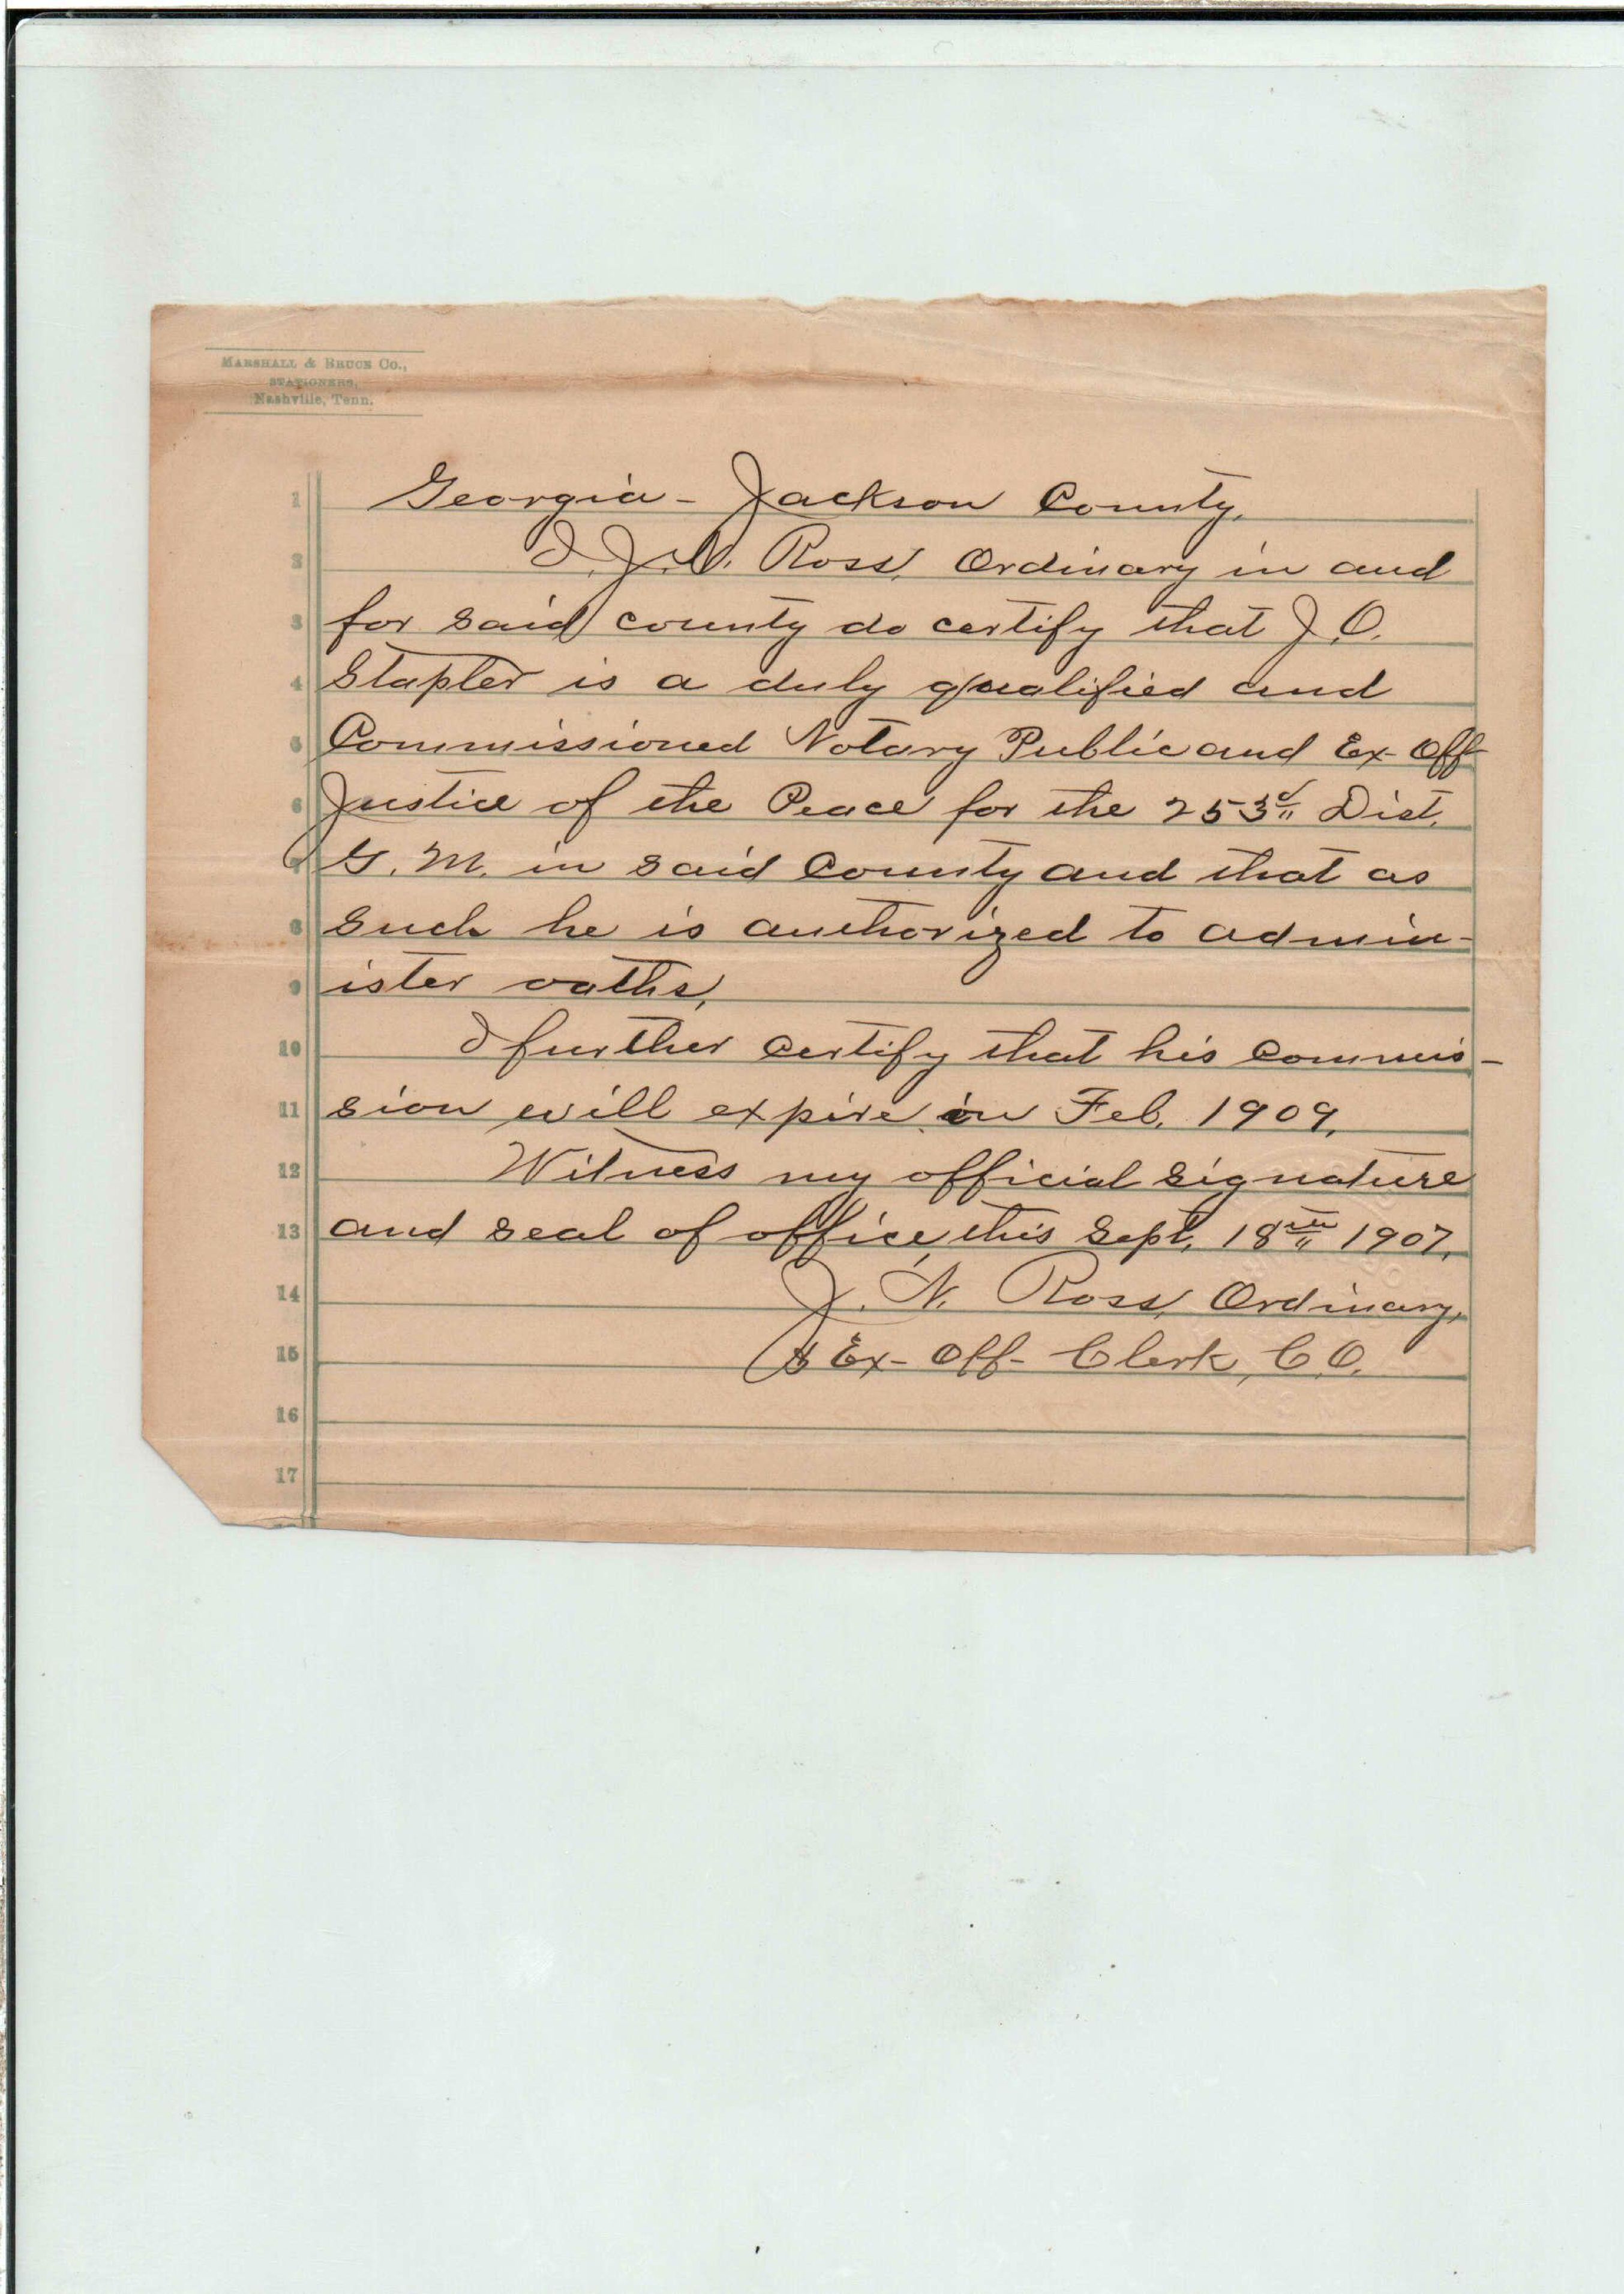 MARSHALL & BRUCE CO.,
STATIONERS,
Nashville, Tenn.
1 Georgia - Jackson County,
2 I, J. N. Ross, Ordinary in and
3 for said county do certify that J. O.
4 Stapler is a duly qualified and
5 Commissioned Notary Public and Ex-Off-
6 Justice of the Peace for the 253d Dist.
7 G. M. in said County and that as
8 such he is authorized to admin-
9 ister oaths,
10 I further certify that his commis-
11 sion will expire in Feb. 1909.
12 Witness my official signature
13 and seal of office, this Sept. 18th 1907.
14 J. N. Ross, Ordinary,
15 & Ex-Off- Clerk, C.O.
16
17